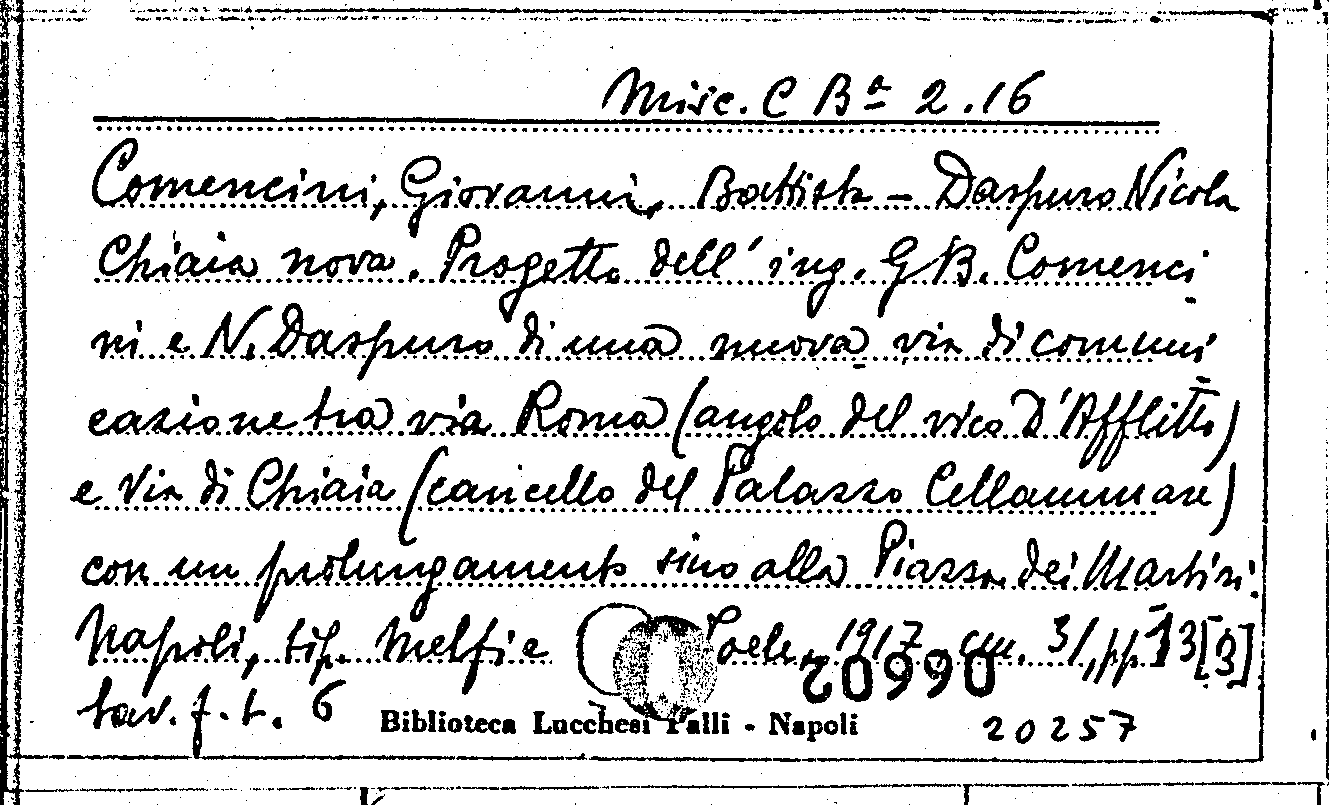 Misc. C Bª 2.16
Comencini, Giovanni, Battista – Daspuro Nicola
Chiaia nova. Progetto dell' ing. GB. Comenci
ni e N. Daspuro di una nuova via di comuni
cazione tra via Roma (angolo del vico D'Afflitto)
e Via di Chiaia (cancello del Palazzo Cellammare)
con un prolungamento sino alla Piazza dei Martiri.
Napoli, tip. Melfi e Joele, 1917 cm. 31, pp. 13 [3]
tav. f. t. 6
Biblioteca Lucchesi Palli - Napoli
20990
20257